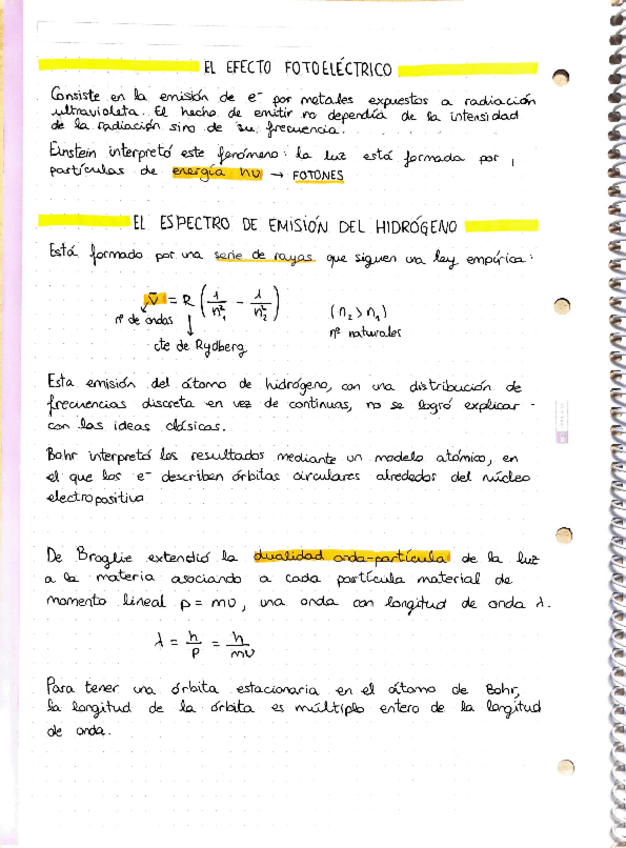 EL EFECTO FOTOELÉCTRICO
Consiste en la emisión de e⁻ por metales expuestos a radiación
ultravioleta. El hecho de emitir no dependía de la intensidad
de la radiación sino de su frecuencia.
Einstein interpretó este fenómeno: la luz está formada por
partículas de energía hν → FOTONES
EL ESPECTRO DE EMISIÓN DEL HIDRÓGENO
Está formado por una serie de rayas que siguen una ley empírica:
ν̅ = R (1/n₁² - 1/n₂²) (n₂ > n₁)
nº de ondas nº naturales
cte de Rydberg
Esta emisión del átomo de hidrógeno, con una distribución de
frecuencias discreta en vez de continuas, no se logró explicar
con las ideas clásicas.
Bohr interpretó los resultados mediante un modelo atómico, en
el que los e⁻ describen órbitas circulares alrededor del núcleo
electropositivo
De Broglie extendió la dualidad onda-partícula de la luz
a la materia asociando a cada partícula material de
momento lineal p = mv, una onda con longitud de onda λ.
λ = h/p = h/mv
Para tener una órbita estacionaria en el átomo de Bohr,
la longitud de la órbita es múltiplo entero de la longitud
de onda.